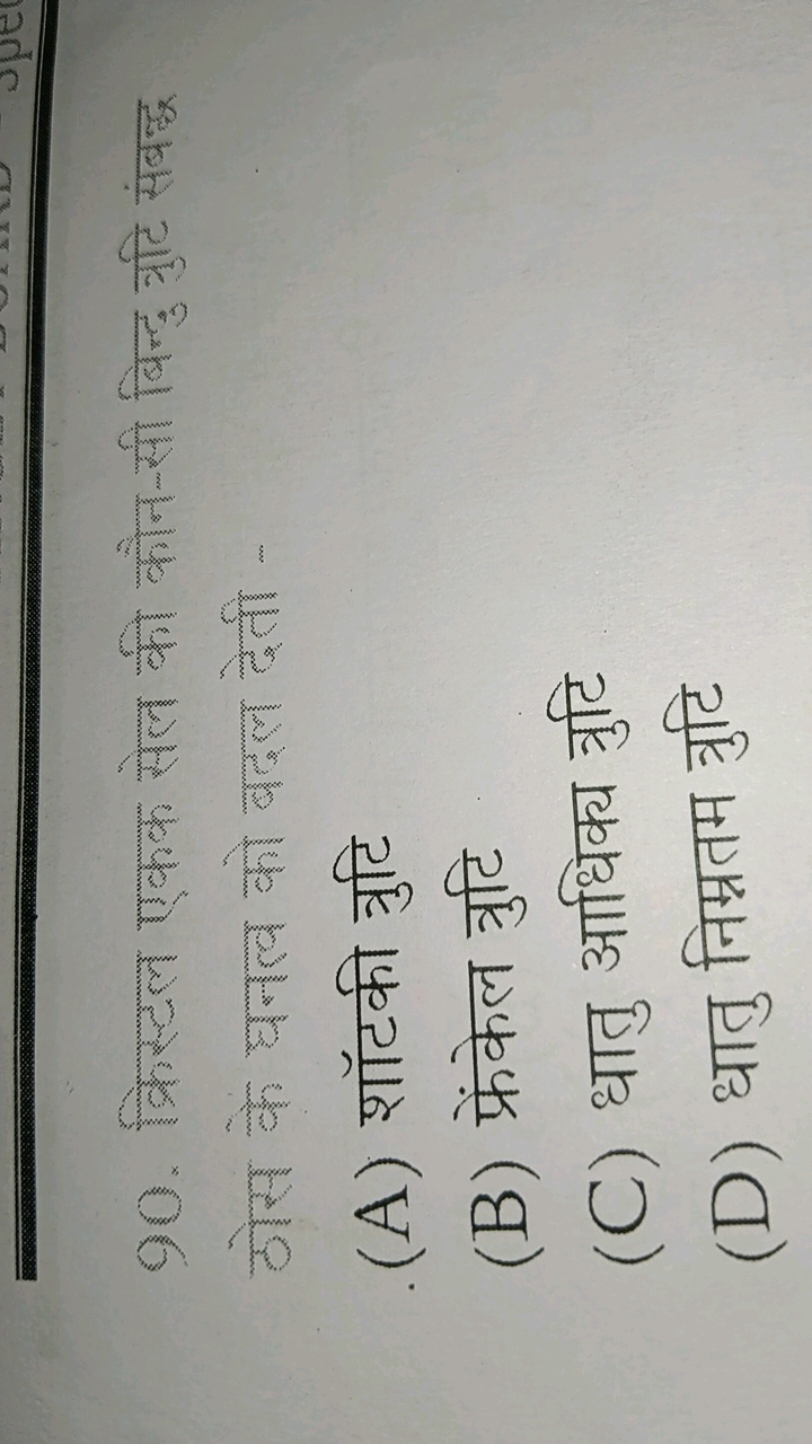 90. क्रिस्टल एकक सेल की कौन-सी बिन्दु त्रुटि संबद्ध
ठोस के घनत्व को बदल देती -
(A) शॉटकी त्रुटि
(B) फ्रेंकेल त्रुटि
(C) धातु आधिक्य त्रुटि
(D) धातु निम्नतम त्रुटि